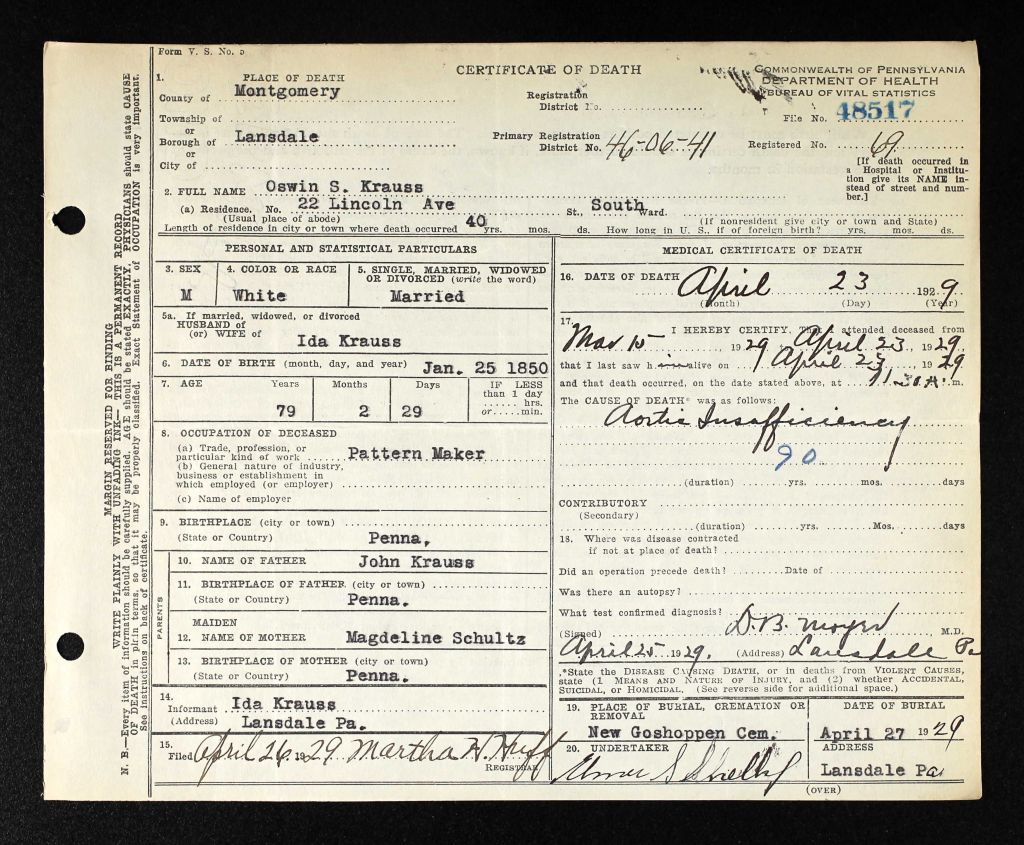 Form V. S. No. 5
CERTIFICATE OF DEATH
COMMONWEALTH OF PENNSYLVANIA
DEPARTMENT OF HEALTH
BUREAU OF VITAL STATISTICS
1. PLACE OF DEATH
County of Montgomery
Township of
or
Borough of Lansdale
or
City of
Registration
District No.
Primary Registration
District No. 46-06-41
File No. 48517
Registered No. 69
[If death occurred in
a Hospital or Institu-
tion give its NAME in-
stead of street and num-
ber.]
2. FULL NAME Oswin S. Krauss
(a) Residence. No. 22 Lincoln Ave St., South Ward.
(Usual place of abode) (If nonresident give city or town and State)
Length of residence in city or town where death occurred 40 yrs. mos. ds. How long in U. S., if of foreign birth? yrs. mos. ds.
PERSONAL AND STATISTICAL PARTICULARS
3. SEX
M
4. COLOR OR RACE
White
5. SINGLE, MARRIED, WIDOWED
OR DIVORCED (write the word)
Married
5a. If married, widowed, or divorced
HUSBAND of
(or) WIFE of
Ida Krauss
6. DATE OF BIRTH (month, day, and year) Jan. 25 1850
7. AGE Years Months Days IF LESS
than 1 day
...... hrs.
or......min.
79 2 29
8. OCCUPATION OF DECEASED
(a) Trade, profession, or
particular kind of work Pattern Maker
(b) General nature of industry,
business or establishment in
which employed (or employer)
(c) Name of employer
9. BIRTHPLACE (city or town)
(State or Country) Penna.
PARENTS
10. NAME OF FATHER John Krauss
11. BIRTHPLACE OF FATHER (city or town)
(State or Country) Penna.
MAIDEN
12. NAME OF MOTHER Magdeline Schultz
13. BIRTHPLACE OF MOTHER (city or town)
(State or Country) Penna.
14.
Informant Ida Krauss
(Address) Lansdale Pa.
15.
Filed April 26 1929. Martha H. Huff
REGISTRAR
MEDICAL CERTIFICATE OF DEATH
16. DATE OF DEATH April 23 1929
(Month) (Day) (Year)
17. I HEREBY CERTIFY, That I attended deceased from
Mar 15 1929 to April 23, 1929
that I last saw him alive on April 23 1929
and that death occurred, on the date stated above, at m.
The CAUSE OF DEATH* was as follows:
Aortic Insufficiency
90
(duration) yrs. mos. days
CONTRIBUTORY
(Secondary)
(duration) yrs. Mos. days
18. Where was disease contracted
if not at place of death?
Did an operation precede death? Date of
Was there an autopsy?
What test confirmed diagnosis?
(Signed) D.B. Moyer M.D.
April 25. 1929. (Address) Lansdale Pa
*State the DISEASE CAUSING DEATH, or in deaths from VIOLENT CAUSES,
state (1 MEANS AND NATURE OF INJURY, and (2) whether ACCIDENTAL,
SUICIDAL, or HOMICIDAL. (See reverse side for additional space.)
19. PLACE OF BURIAL, CREMATION OR
REMOVAL
New Goshoppen Cem.
DATE OF BURIAL
April 27 1929
20. UNDERTAKER
Shelly
ADDRESS
Lansdale Pa.
(OVER)
MARGIN RESERVED FOR BINDING
WRITE PLAINLY WITH UNFADING INK—THIS IS A PERMANENT RECORD
N. B.—Every item of information should be carefully supplied. AGE should be stated EXACTLY. PHYSICIANS should state CAUSE
OF DEATH in plain terms, so that it may be properly classified. Exact Statement of OCCUPATION is very important.
See instructions on back of certificate.